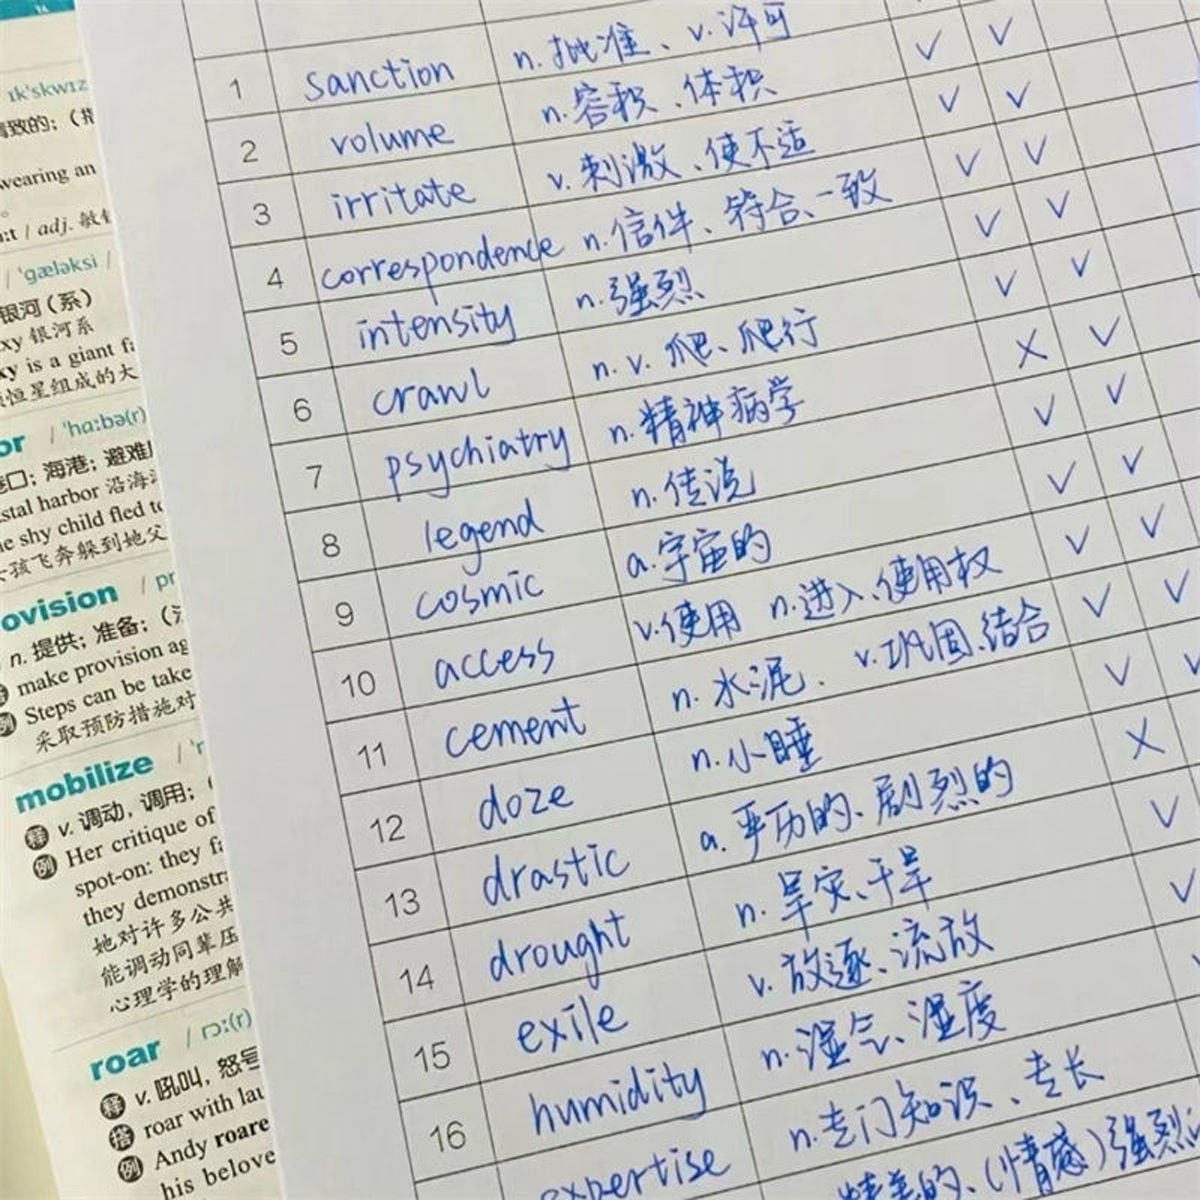 ɪk'skwɪz
wearing an
/ adj.
/ 'gæləksi /
银河（系）
xy 银河系
xy is a giant
恒星组成的大
or / 'hɑ:bə(r)
海港；避难
stal harbor 沿海
he shy child fled to
孩飞奔躲到她父
ovision / pr
n. 提供；准备；（
make provision ag
例 Steps can be take
采取预防措施对
mobilize / 'r
释 v. 调动，调用；（
例 Her critique of
spot-on: they fa
they demonstra
她对许多公共
能调动同辈压
心理学的理解
roar / rɔ:(r)
释 v. 吼叫，怒号
搭 roar with lau
例 Andy roare
his belove
1 sanction n. 批准、v. 许可 ✓ ✓
2 volume n. 容积、体积 ✓ ✓
3 irritate v. 刺激、使不适 ✓ ✓
4 correspondence n. 信件、符合、一致 ✓ ✓
5 intensity n. 强烈 ✓ ✓
6 crawl n. v. 爬、爬行 × ✓
7 psychiatry n. 精神病学 ✓ ✓
8 legend n. 传说 ✓ ✓
9 cosmic a. 宇宙的 ✓ ✓
10 access v. 使用 n. 进入、使用权 ✓ ✓
11 cement n. 水泥. v. 巩固、结合 ✓
12 doze n. 小睡 ×
13 drastic a. 严厉的、剧烈的 ✓
14 drought n. 旱灾、干旱 ✓
15 exile v. 放逐、流放
16 humidity n. 湿气、湿度
expertise n. 专门知识、专长
（情感）强烈